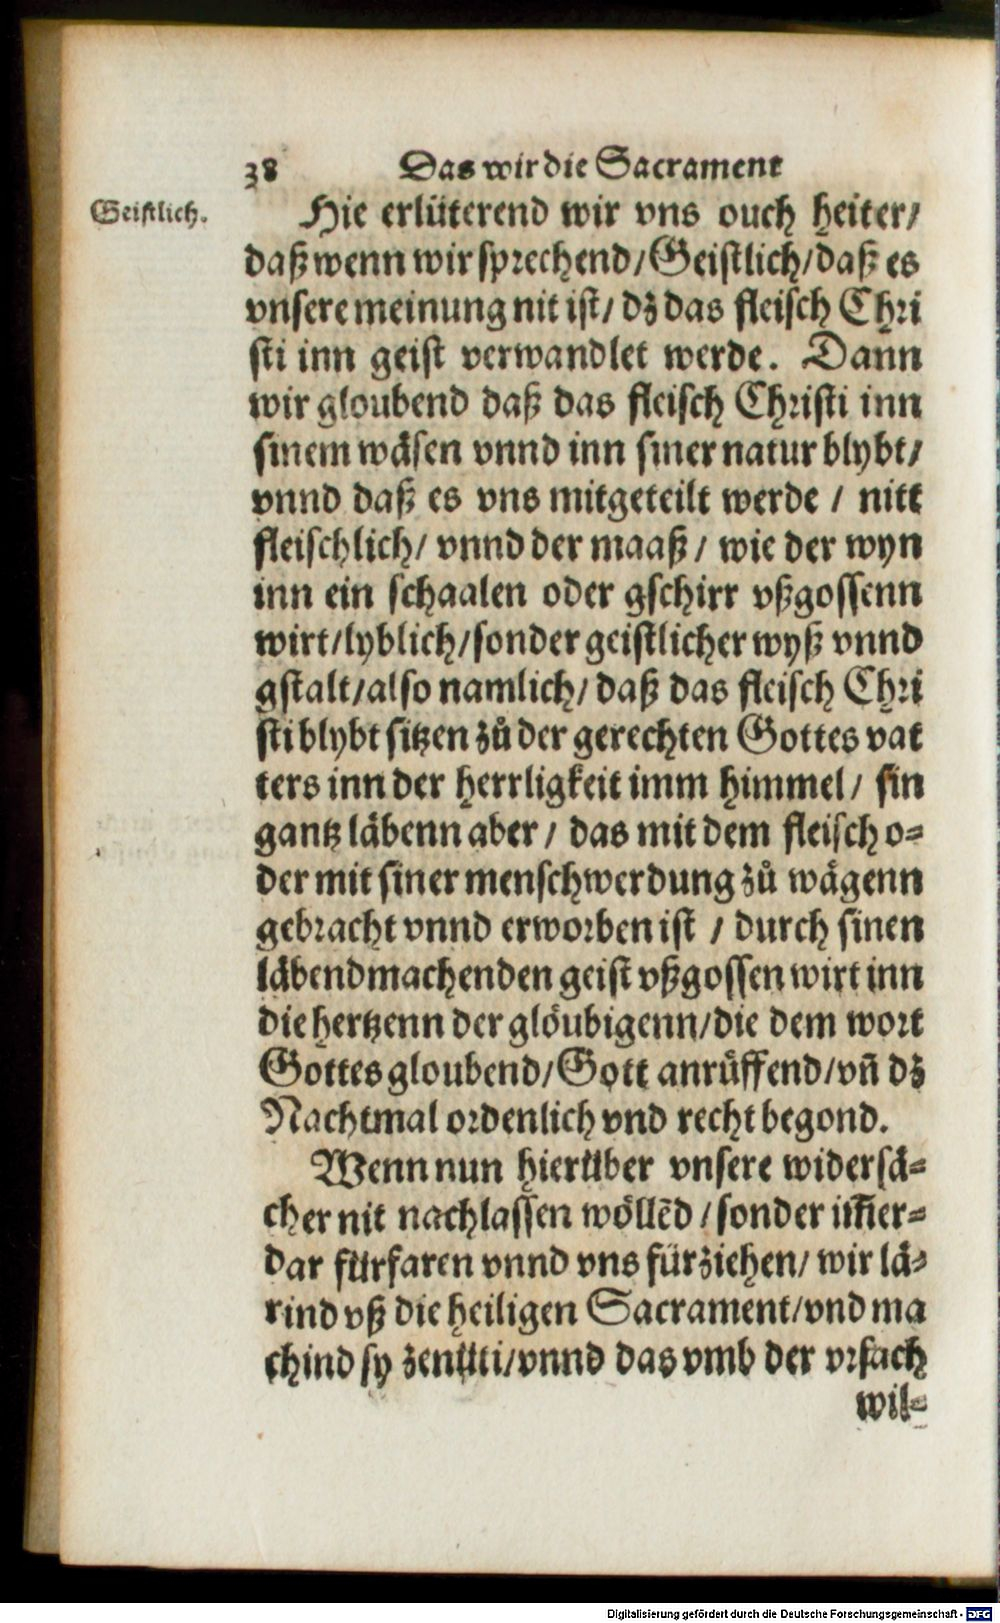 38 Das wir die Sacrament
Geistlich.
Hie erlüterend wir vns ouch heiter/
daß wenn wir sprechend/Geistlich/daß es
vnsere meinung nit ist/ dz das fleisch Chri
sti inn geist verwandlet werde. Dann
wir gloubend daß das fleisch Christi inn
sinem wäsen vnnd inn siner natur blybt/
vnnd daß es vns mitgeteilt werde / nitt
fleischlich/ vnnd der maaß / wie der wyn
inn ein schaalen oder gschirr vßgossenn
wirt/lyblich/sonder geistlicher wyß vnnd
gstalt/also namlich/ daß das fleisch Chri
sti blybt sitzen zů der gerechten Gottes vat
ters inn der herrligkeit imm himmel/ sin
gantz läbenn aber / das mit dem fleisch o-
der mit siner menschwerdung zů wägenn
gebracht vnnd erworben ist / durch sinen
läbendmachenden geist vßgossen wirt inn
die hertzenn der glöubigenn/die dem wort
Gottes gloubend/Gott anrůffend/vñ dz
Nachtmal ordenlich vnd recht begond.
Wenn nun hierüber vnsere widersä-
cher nit nachlassen wöllẽd / sonder im̃er-
dar fürfaren vnnd vns fürziehen/ wir lä-
rind vß die heiligen Sacrament/vnd ma
chind sy zenüti/vnnd das vmb der vrsach
wil-
Digitalisierung gefördert durch die Deutsche Forschungsgemeinschaft - DFG